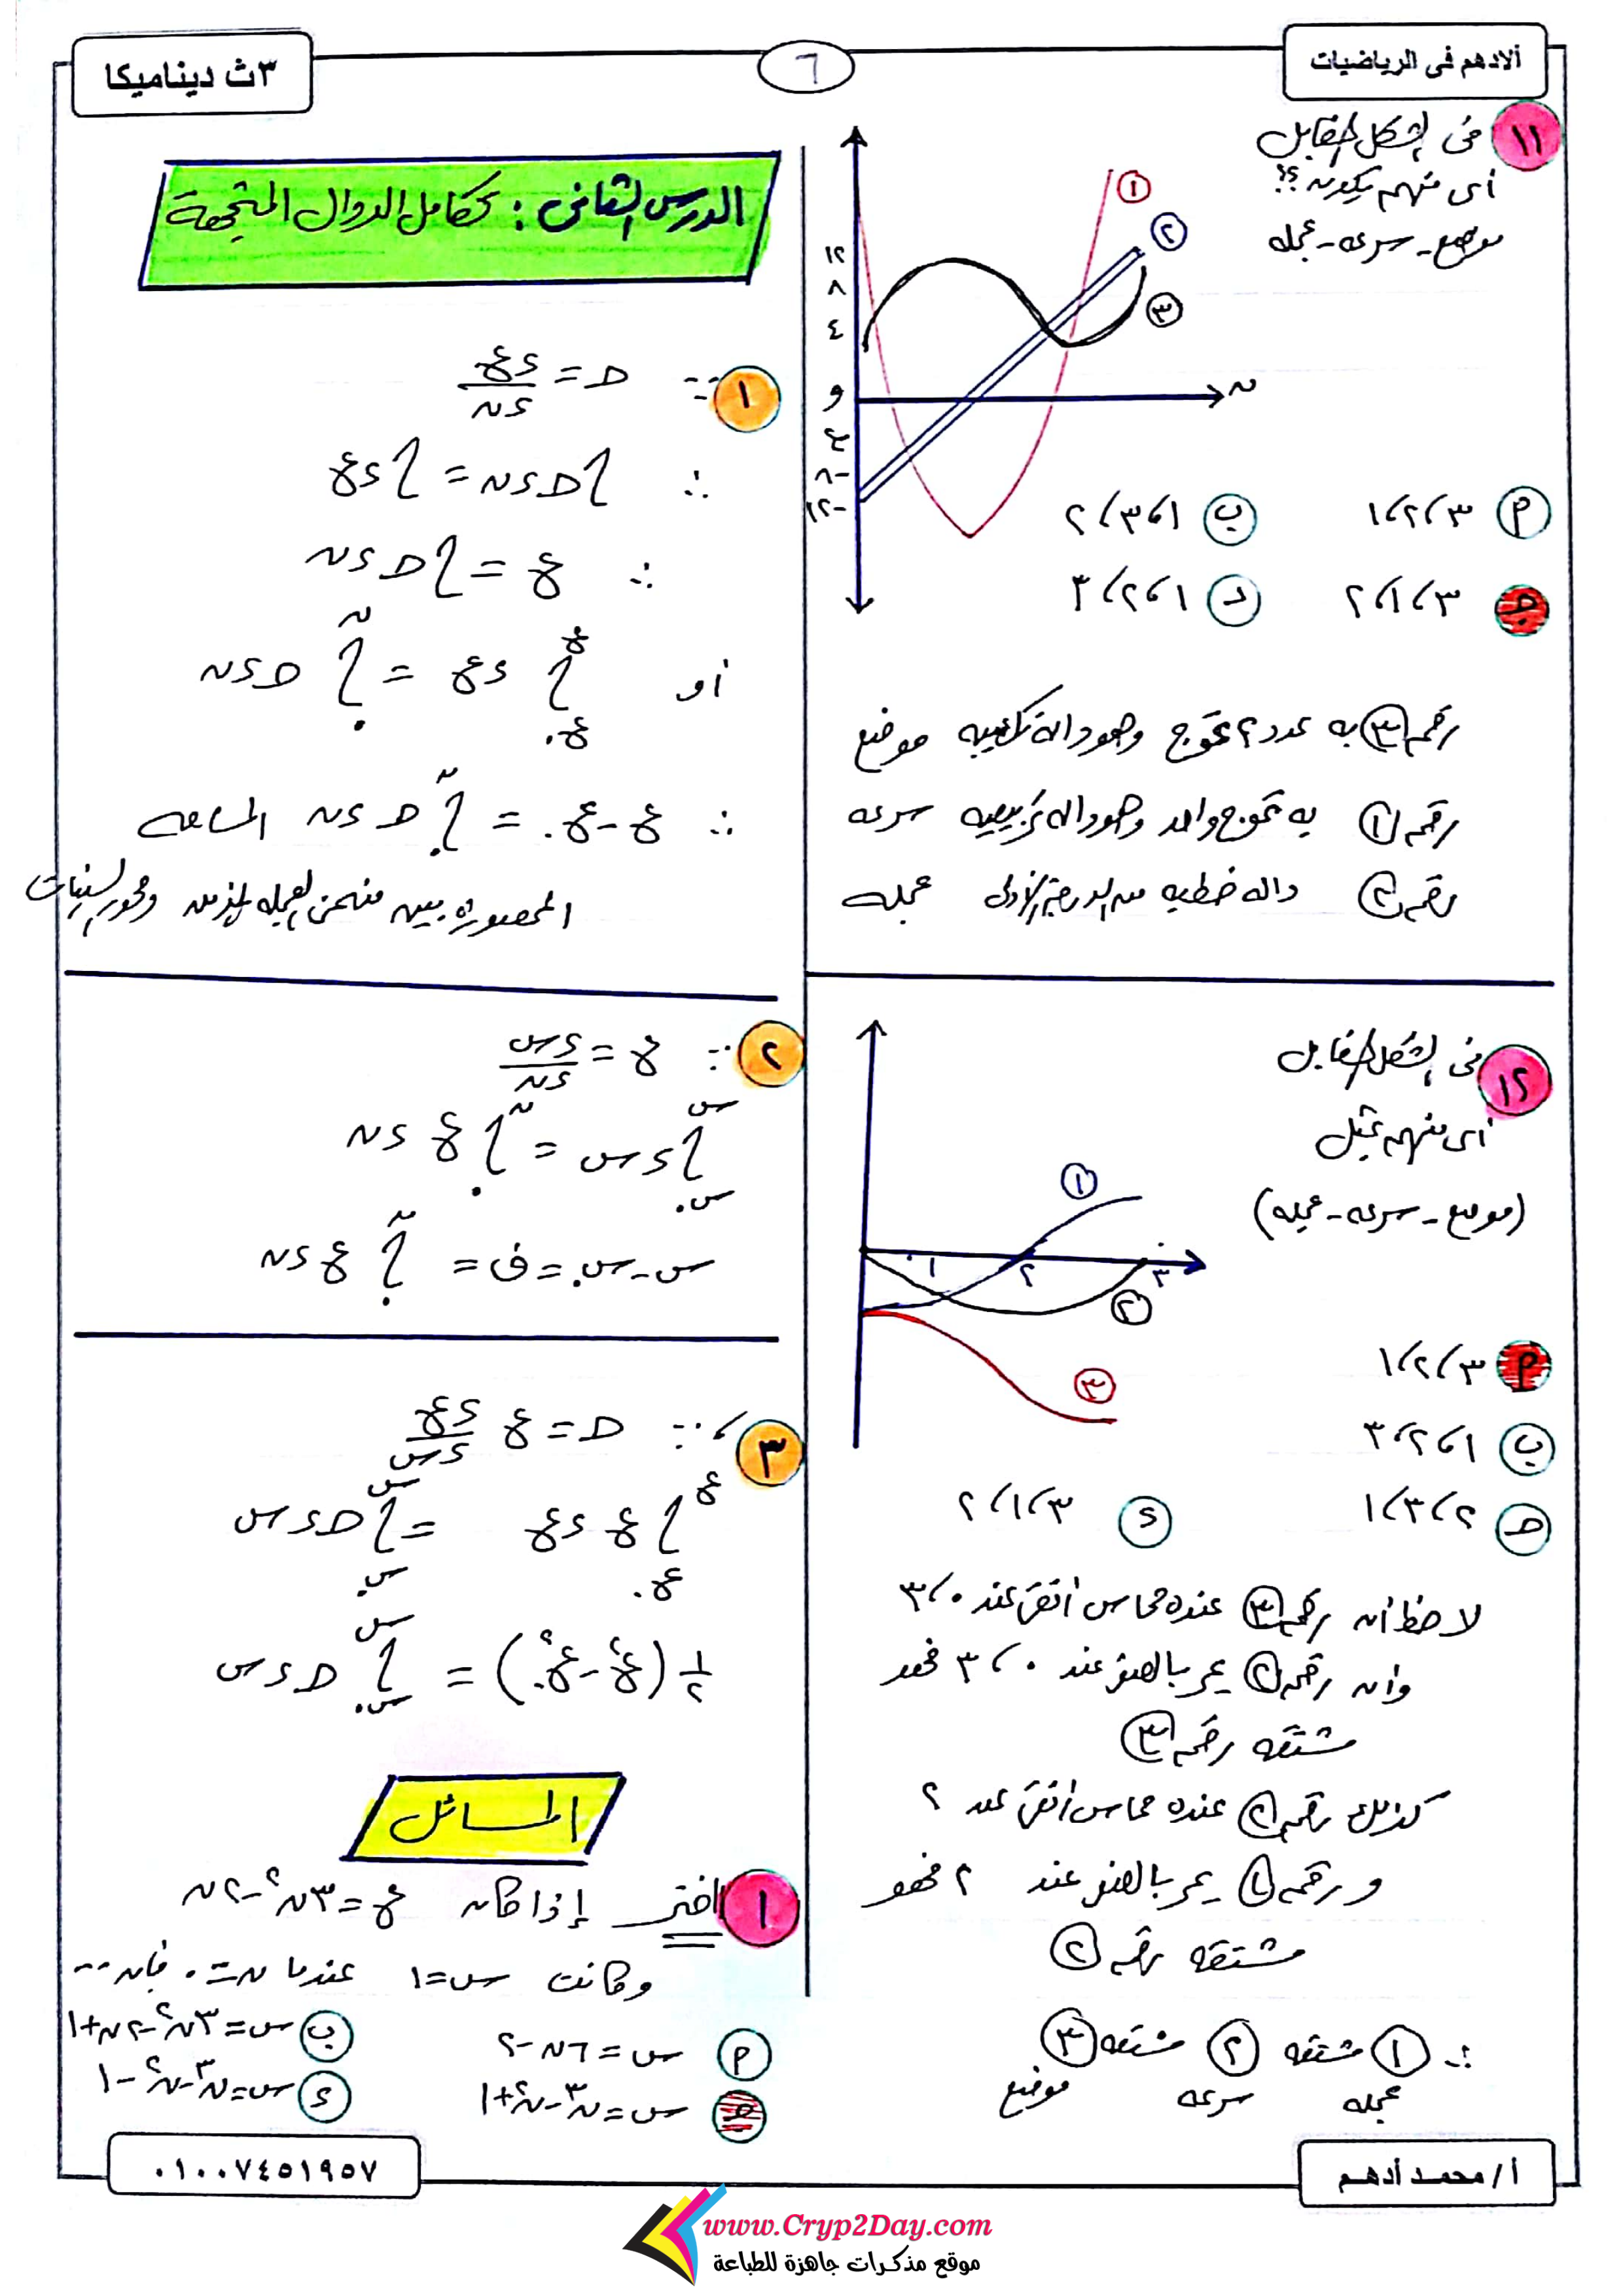 ألادهم فى الرياضيات
٦
٣ث ديناميكا
١١ فى الشكل المقابل
أى منهم يكون ؟؟
موضع - سرعه - عجله
١
٢
٣
١٢
٨
٤
و
-٤
-٨
-١٢
ن
أ ٣ ، ٢ ، ١
ب ١ ، ٣ ، ٢
جـ ٣ ، ١ ، ٢
د ١ ، ٢ ، ٣
رقم ٣ به عدد ٢ تموج وهو دالة تكعيبيه موضع
رقم ١ به تموج واحد وهو داله تربيعيه سرعه
رقم ٢ داله خطيه من الدرجة الأولى عجله
١٢ فى الشكل المقابل
أى منهم يمثل
(موضع - سرعه - عجله)
١
٢
٣
١ ٢ ٣
أ ٣ ، ٢ ، ١
ب ١ ، ٢ ، ٣
حـ ٢ ، ٣ ، ١
ء ٣ ، ١ ، ٢
لاحظ أن رقم ٣ عنده مماس أفقى عند ٠ ، ٣
وأن رقم ٢ يمر بالصفر عند ٠ ، ٣ فهو
مشتقه رقم ٣
كذلك رقم ٢ عنده مماس أفقى عند ٢
و رقم ١ يمر بالصفر عند ٢ فهو
مشتقه رقم ٢
∴ ١ مشتقه ٢ مشتقه ٣
عجله سرعه موضع
الدرس الثانى : تكامل الدوال المتجهة
١ ∵ حـ = ءع/ءن
∴ ∫حـ ءن = ∫ءع
∴ ع = ∫حـ ءن
أو ∫ ءع = ∫ حـ ءن
∴ ع - ع. = ∫ حـ ءن المساحه
المحصورة بين منحنى العجله الزمن ومحور السينات
٢ ∵ ع = ءس/ءن
∫ءس = ∫ع ءن
س - س. = ف = ∫ ع ءن
٣ ∵ حـ = ع ءع/ءس
∫ ع ءع = ∫ حـ ءس
١/٢ (ع² - ع.²) = ∫ حـ ءس
المسائل
١ اختر إذا كان ع = ٣ن² - ٢ن
وكانت س = ١ عندما ن = ٠ فإن ...
أ س = ٦ن - ٢
ب س = ٣ن² - ٢ن + ١
حـ س = ن³ - ن² + ١
ء س = ن³ - ن² - ١
أ / محمد أدهم
٠١٠٠٧٤٥١٩٥٧
www.Cryp2Day.com
موقع مذكرات جاهزة للطباعة